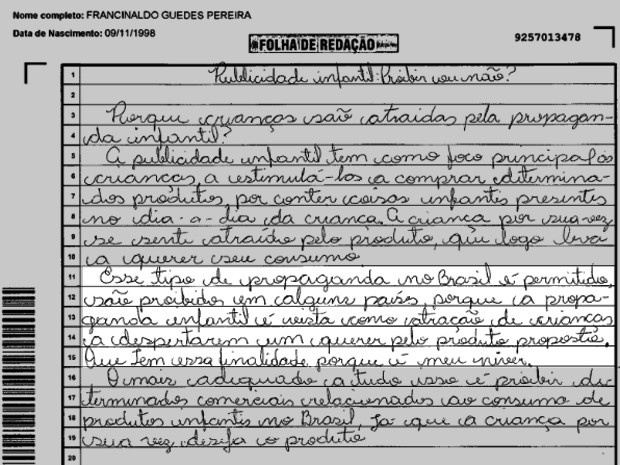 Nome completo: FRANCINALDO GUEDES PEREIRA
Data de Nascimento: 09/11/1998
FOLHA DE REDAÇÃO
9257013478
1 Publicidade infantil: Proibir ou não?
2
3 Porque crianças são atraidas pela propagan-
4 da infantil?
5 A publicidade infantil tem como foco principal os
6 crianças, a estimulá-los a comprar determina-
7 dos produtos, por conter coisas infantis presentes
8 no dia-a-dia da criança. A criança por sua vez
9 se sente atraído pelo produto, que logo leva
10 a querer seu consumo
11 Esse tipo de propaganda no Brasil é permitido,
12 são proibidos em alguns país, porque a propa-
13 ganda infantil é vista como atração, de crianças
14 a despertarem um querer pelo produto proposto.
15 Que tem essa finalidade porque é meu niver.
16 O mais adequado a tudo isso é proibir de-
17 terminados comerciais relacionados ao consumo de
18 produtos infantis no Brasil, Já que a criança por
19 sua vez, deseja o produto
20